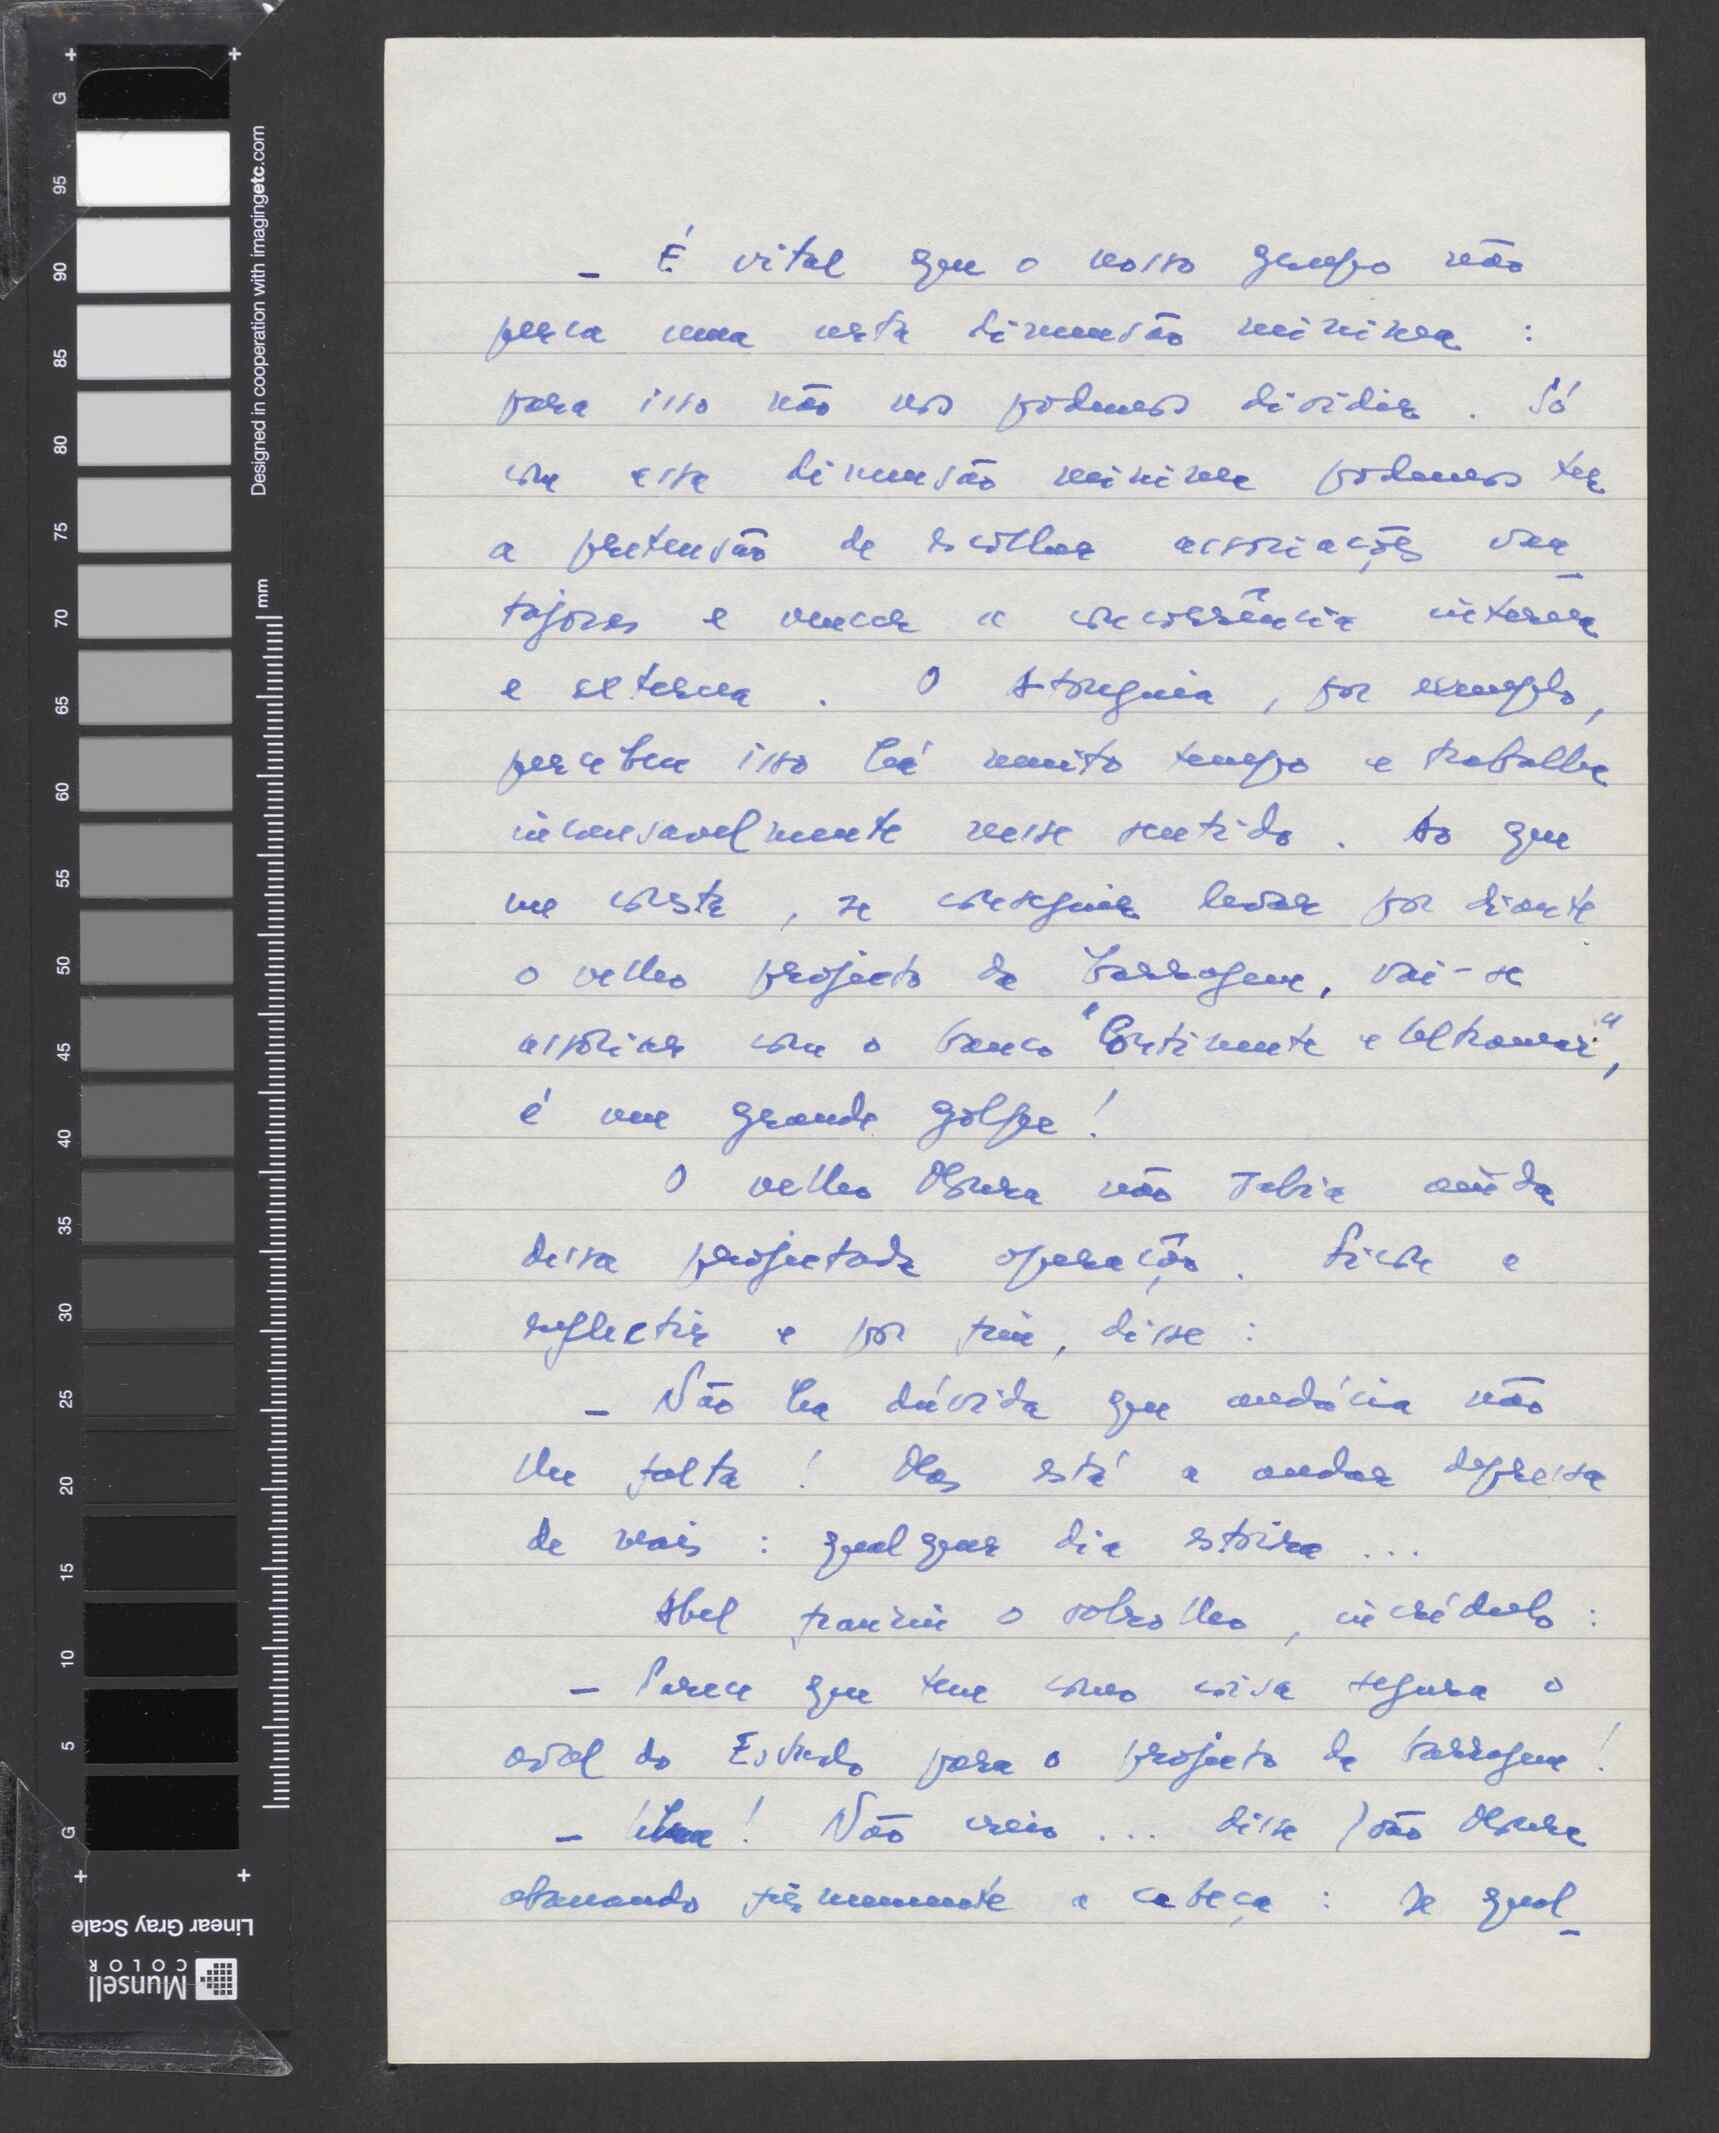 G
95
90
85
80
75
70
65
60
55
50
45
40
35
30
25
20
15
10
5
G
Designed in cooperation with imagingetc.com
mm
Linear Gray Scale
Munsell
COLOR
– É vital que o nosso grupo não
perca uma certa dimensão minima :
para isso não nos podemos dividir . Só
com essa dimensão minima podemos ter
a pretensão de escolher associações van-
tajosas e vencer a concorrência interna
e externa . O , por exemplo,
percebeu isso há muito tempo e trabalha
incansavelmente nesse sentido . Ao que
me consta , se conseguir levar por diante
o velho projecto da barragem, vai-se
associar com o banco "Continente e Ultramar",
é um grande golpe !
O velho Moura não sabia ainda
dessa projectada operação . Ficou a
reflectir e por fim, disse :
– Não ha dúvida que audácia não
lhe falta ! Mas está a andar depressa
de mais : qualquer dia estoira ...
Abel franziu o sobrolho , incrédulo :
– Parece que tem como coisa segura o
aval do Estado para o projecto da barragem !
– ! Não creio ... disse João Moura
abanando firmemente a cabeça : se qual-